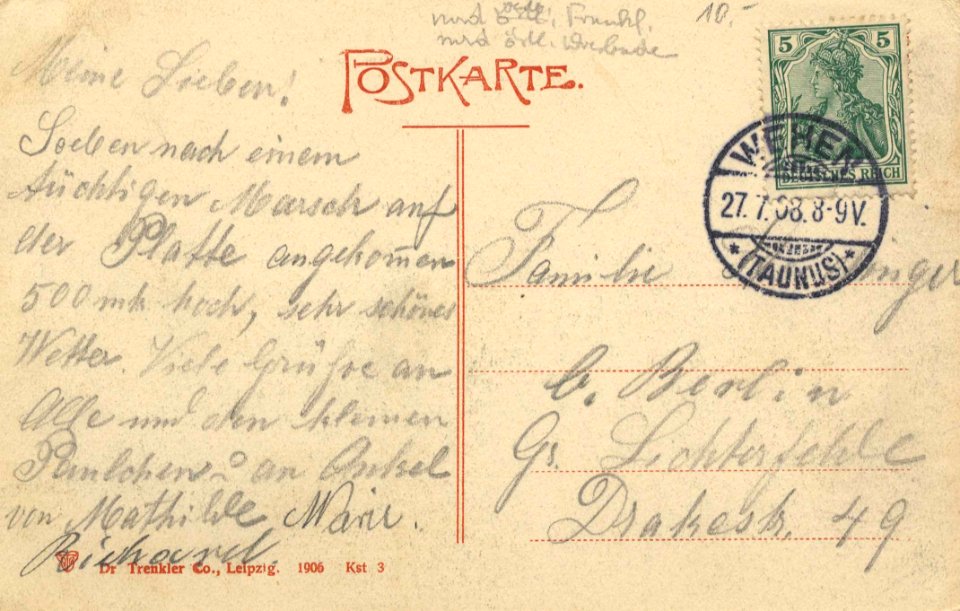 nord östl. Frankf.
nord östl. Wiesbade
10.-
POSTKARTE.
5 5
DEUTSCHES REICH
WEHEN
27.7.08.8-9V.
*(TAUNUS)*
Meine Lieben!
Soeben nach einem
tüchtigen Marsch auf
der Platte angekommen
500 mtr hoch, sehr schönes
Wetter. Viele Grüße an
Alle und den kleinen
Paulchen u. an Onkel
von Mathilde Marie.
Richard
Familie
b. Berlin
Gr. Lichterfelde
Drakestr. 49
Dr Trenkler Co., Leipzig. 1906 Kst 3